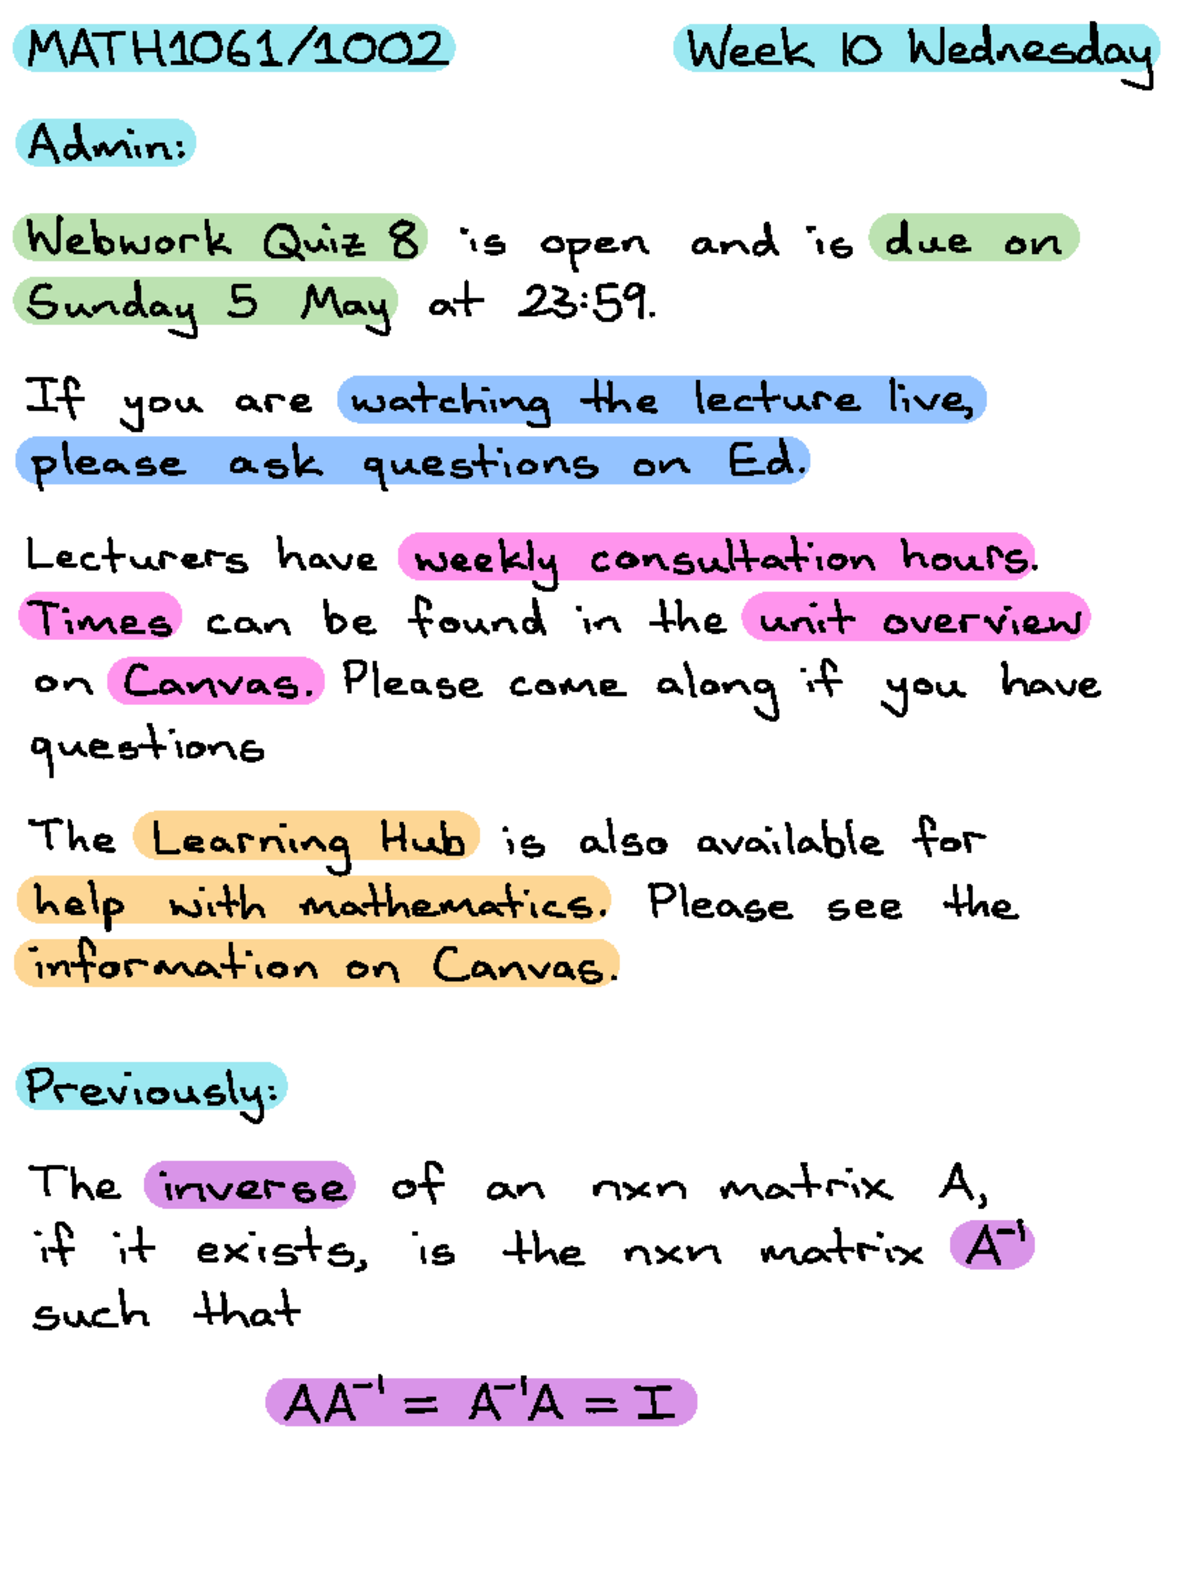 MATH1061/1002 Week 10 Wednesday
Admin:
Webwork Quiz 8 is open and is due on
Sunday 5 May at 23:59.
If you are watching the lecture live,
please ask questions on Ed.
Lecturers have weekly consultation hours.
Times can be found in the unit overview
on Canvas. Please come along if you have
questions
The Learning Hub is also available for
help with mathematics. Please see the
information on Canvas.
Previously:
The inverse of an nxn matrix A,
if it exists, is the nxn matrix A⁻¹
such that
AA⁻¹ = A⁻¹A = I